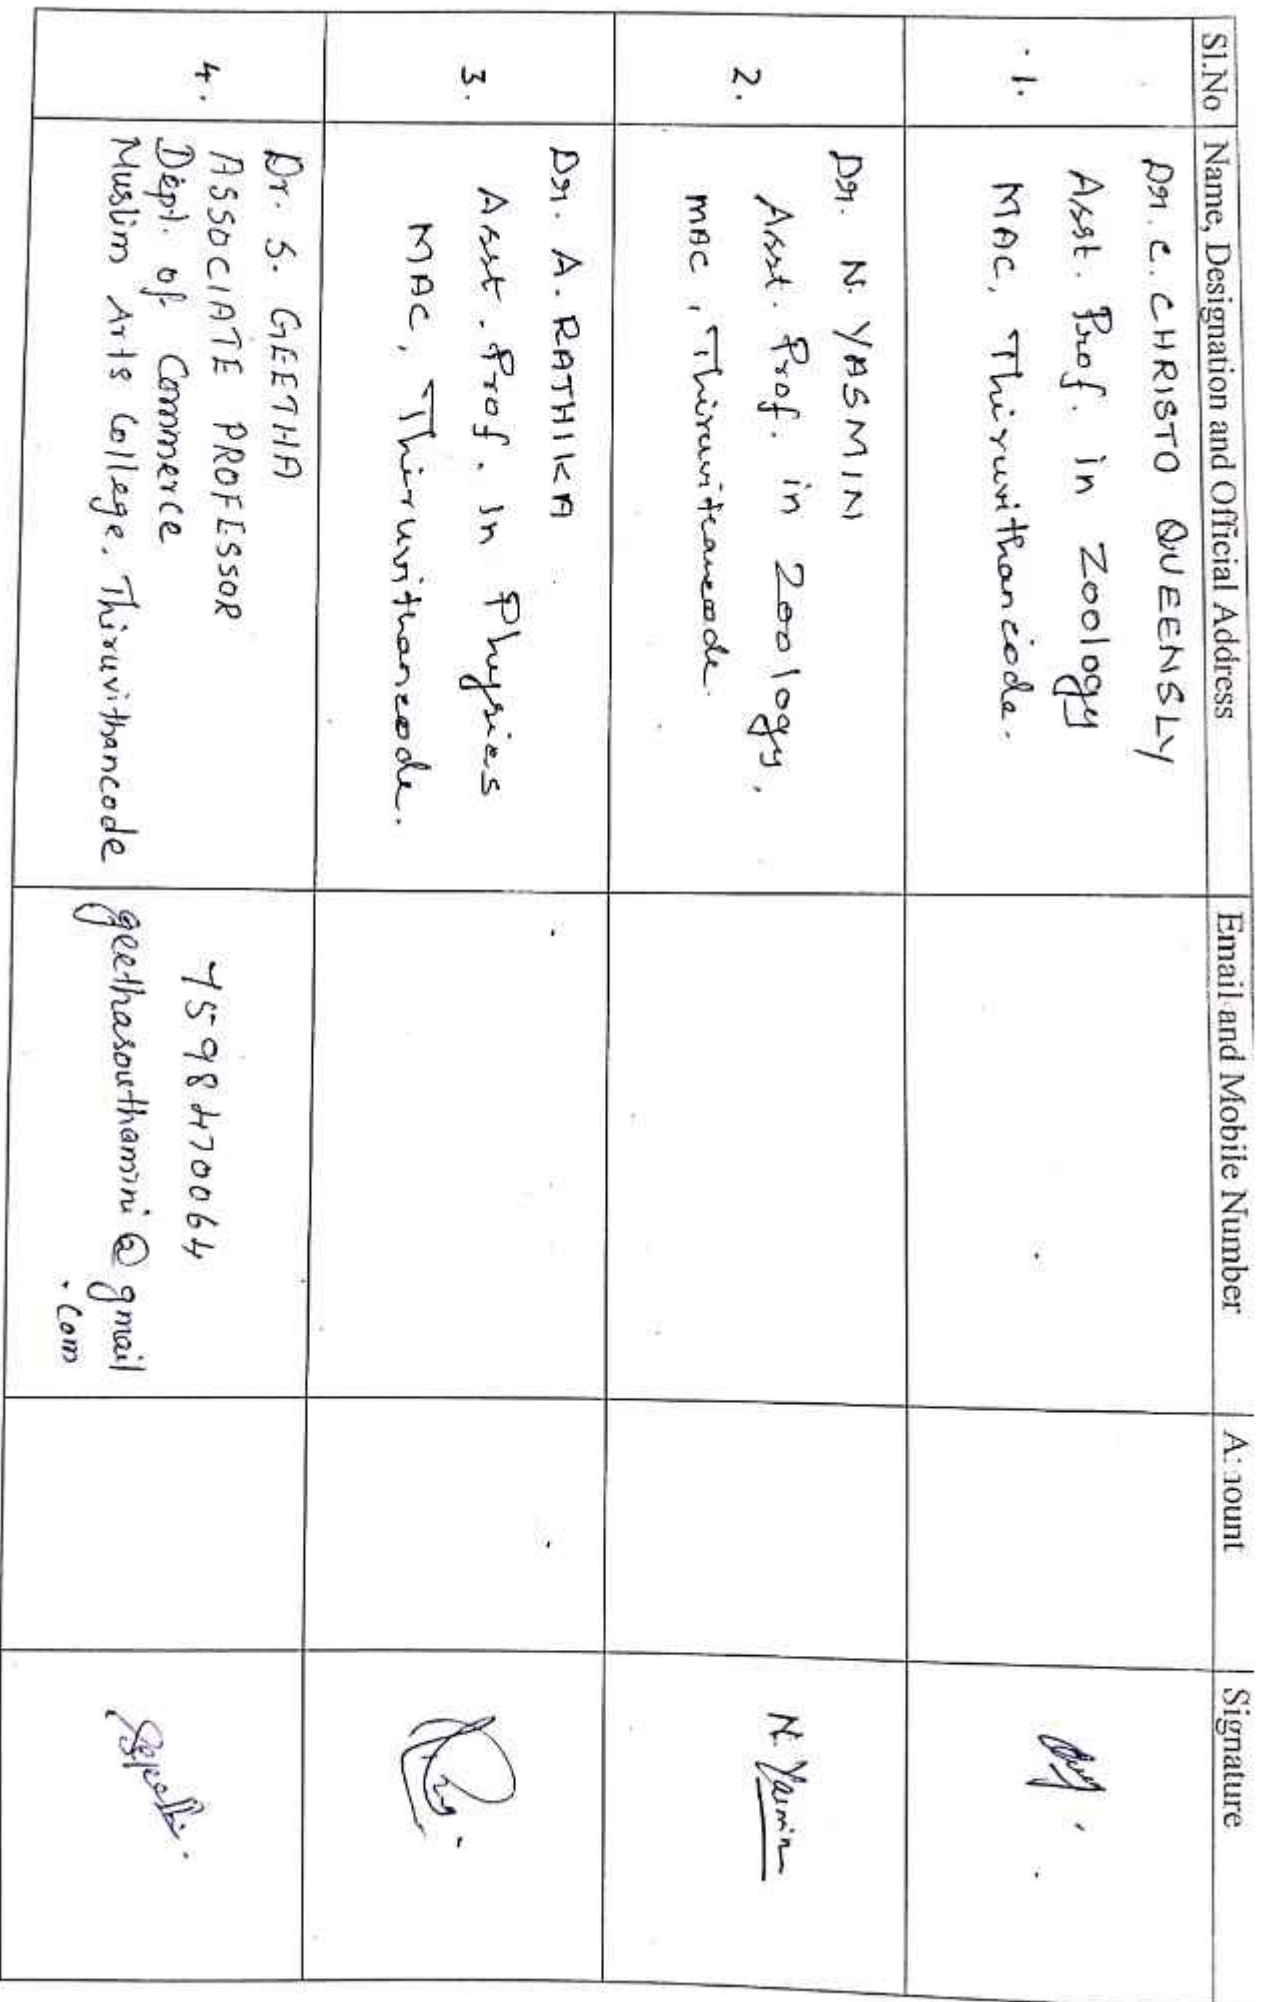 Sl.No Name, Designation and Official Address Email and Mobile Number Amount Signature
1. Dr. C. CHRISTO QUEENSLY
Asst. Prof. in Zoology
MAC, Thiruvithancode.
2. Dr. N. YASMIN
Asst. Prof. in Zoology,
MAC, Thiruvitcancode.
N. Yasmin
3. Dr. A. RATHIKA
Asst. Prof. in Physics
MAC, Thiruvithancode.
4. Dr. S. GEETHA
ASSOCIATE PROFESSOR
Dept. of Commerce
Muslim Arts College. Thiruvithancode
7598470064
geethasouthamini@gmail
.com